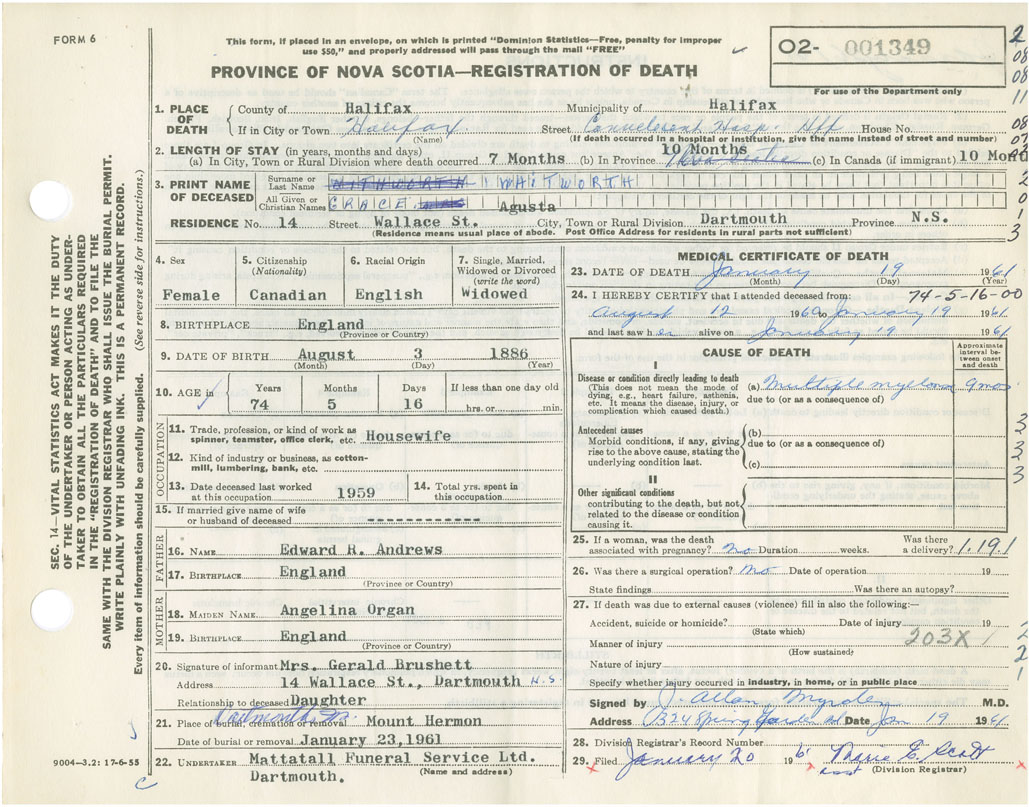 FORM 6
This form, if placed in an envelope, on which is printed "Dominion Statistics—Free, penalty for improper
use $50," and properly addressed will pass through the mail "FREE"
PROVINCE OF NOVA SCOTIA—REGISTRATION OF DEATH
02- 001349
For use of the Department only
1. PLACE OF DEATH
County of Halifax Municipality of Halifax
If in City or Town Halifax. Street Convalescent Hosp. Hfx House No.
(Name) (If death occurred in a hospital or institution, give the name instead of street and number)
2. LENGTH OF STAY (in years, months and days) 10 Months
(a) In City, Town or Rural Division where death occurred 7 Months (b) In Province Nova Scotia (c) In Canada (if immigrant) 10 Mont
3. PRINT NAME OF DECEASED
Surname or Last Name WITHWORTH WAITWORTH
All Given or Christian Names GRACE Agusta
RESIDENCE No. 14 Street Wallace St. City, Town or Rural Division Dartmouth Province N.S.
(Residence means usual place of abode. Post Office Address for residents in rural parts not sufficient)
4. Sex
Female
5. Citizenship
(Nationality)
Canadian
6. Racial Origin
English
7. Single, Married,
Widowed or Divorced
(write the word)
Widowed
8. BIRTHPLACE England
(Province or Country)
9. DATE OF BIRTH August 3 1886
(Month) (Day) (Year)
10. AGE in
Years Months Days If less than one day old
74 5 16 hrs. or min.
OCCUPATION
11. Trade, profession, or kind of work as
spinner, teamster, office clerk, etc. Housewife
12. Kind of industry or business, as cotton-
mill, lumbering, bank, etc.
13. Date deceased last worked
at this occupation 1959
14. Total yrs. spent in
this occupation
15. If married give name of wife
or husband of deceased ----------
FATHER
16. NAME Edward R. Andrews
17. BIRTHPLACE England
(Province or Country)
MOTHER
18. MAIDEN NAME Angelina Organ
19. BIRTHPLACE England
(Province or Country)
20. Signature of informant Mrs. Gerald Brushett
Address 14 Wallace St., Dartmouth N.S.
Relationship to deceased Daughter
21. Place of burial, cremation or removal Mount Hermon
Date of burial or removal January 23,1961
22. UNDERTAKER Mattatall Funeral Service Ltd.
(Name and address)
Dartmouth.
9004—3.2: 17-6-55
MEDICAL CERTIFICATE OF DEATH
23. DATE OF DEATH January 19 1961
(Month) (Day) (Year)
24. I HEREBY CERTIFY that I attended deceased from: 74-5-16-00
August 12 1960 to January 19 1961
and last saw her alive on January 19 1961
CAUSE OF DEATH
Approximate interval between onset and death
I
Disease or condition directly leading to death
(This does not mean the mode of
dying, e.g., heart failure, asthenia,
etc. It means the disease, injury, or
complication which caused death.)
(a) Multiple myeloma 9mos.
due to (or as a consequence of)
Antecedent causes
Morbid conditions, if any, giving
rise to the above cause, stating the
underlying condition last.
(b)
due to (or as a consequence of)
(c)
II
Other significant conditions
contributing to the death, but not
related to the disease or condition
causing it.
25. If a woman, was the death
associated with pregnancy? No Duration weeks. Was there
a delivery? 1.19.1
26. Was there a surgical operation? No Date of operation 19
State findings Was there an autopsy?
27. If death was due to external causes (violence) fill in also the following:—
Accident, suicide or homicide? Date of injury 19
(State which)
Manner of injury 203X
(How sustained)
Nature of injury
Specify whether injury occurred in industry, in home, or in public place
Signed by J. Allan Myrden M.D.
Address Spring Garden Rd Date Jan 19 1961
28. Division Registrar's Record Number
29. Filed January 20 196 Marie E. Scott
(Division Registrar)
SEC. 14—VITAL STATISTICS ACT MAKES IT THE DUTY
OF THE UNDERTAKER OR PERSON ACTING AS UNDER-
TAKER TO OBTAIN ALL THE PARTICULARS REQUIRED
IN THE "REGISTRATION OF DEATH" AND TO FILE THE
SAME WITH THE DIVISION REGISTRAR WHO SHALL ISSUE THE BURIAL PERMIT.
WRITE PLAINLY WITH UNFADING INK. THIS IS A PERMANENT RECORD.
Every item of information should be carefully supplied. (See reverse side for instructions.)